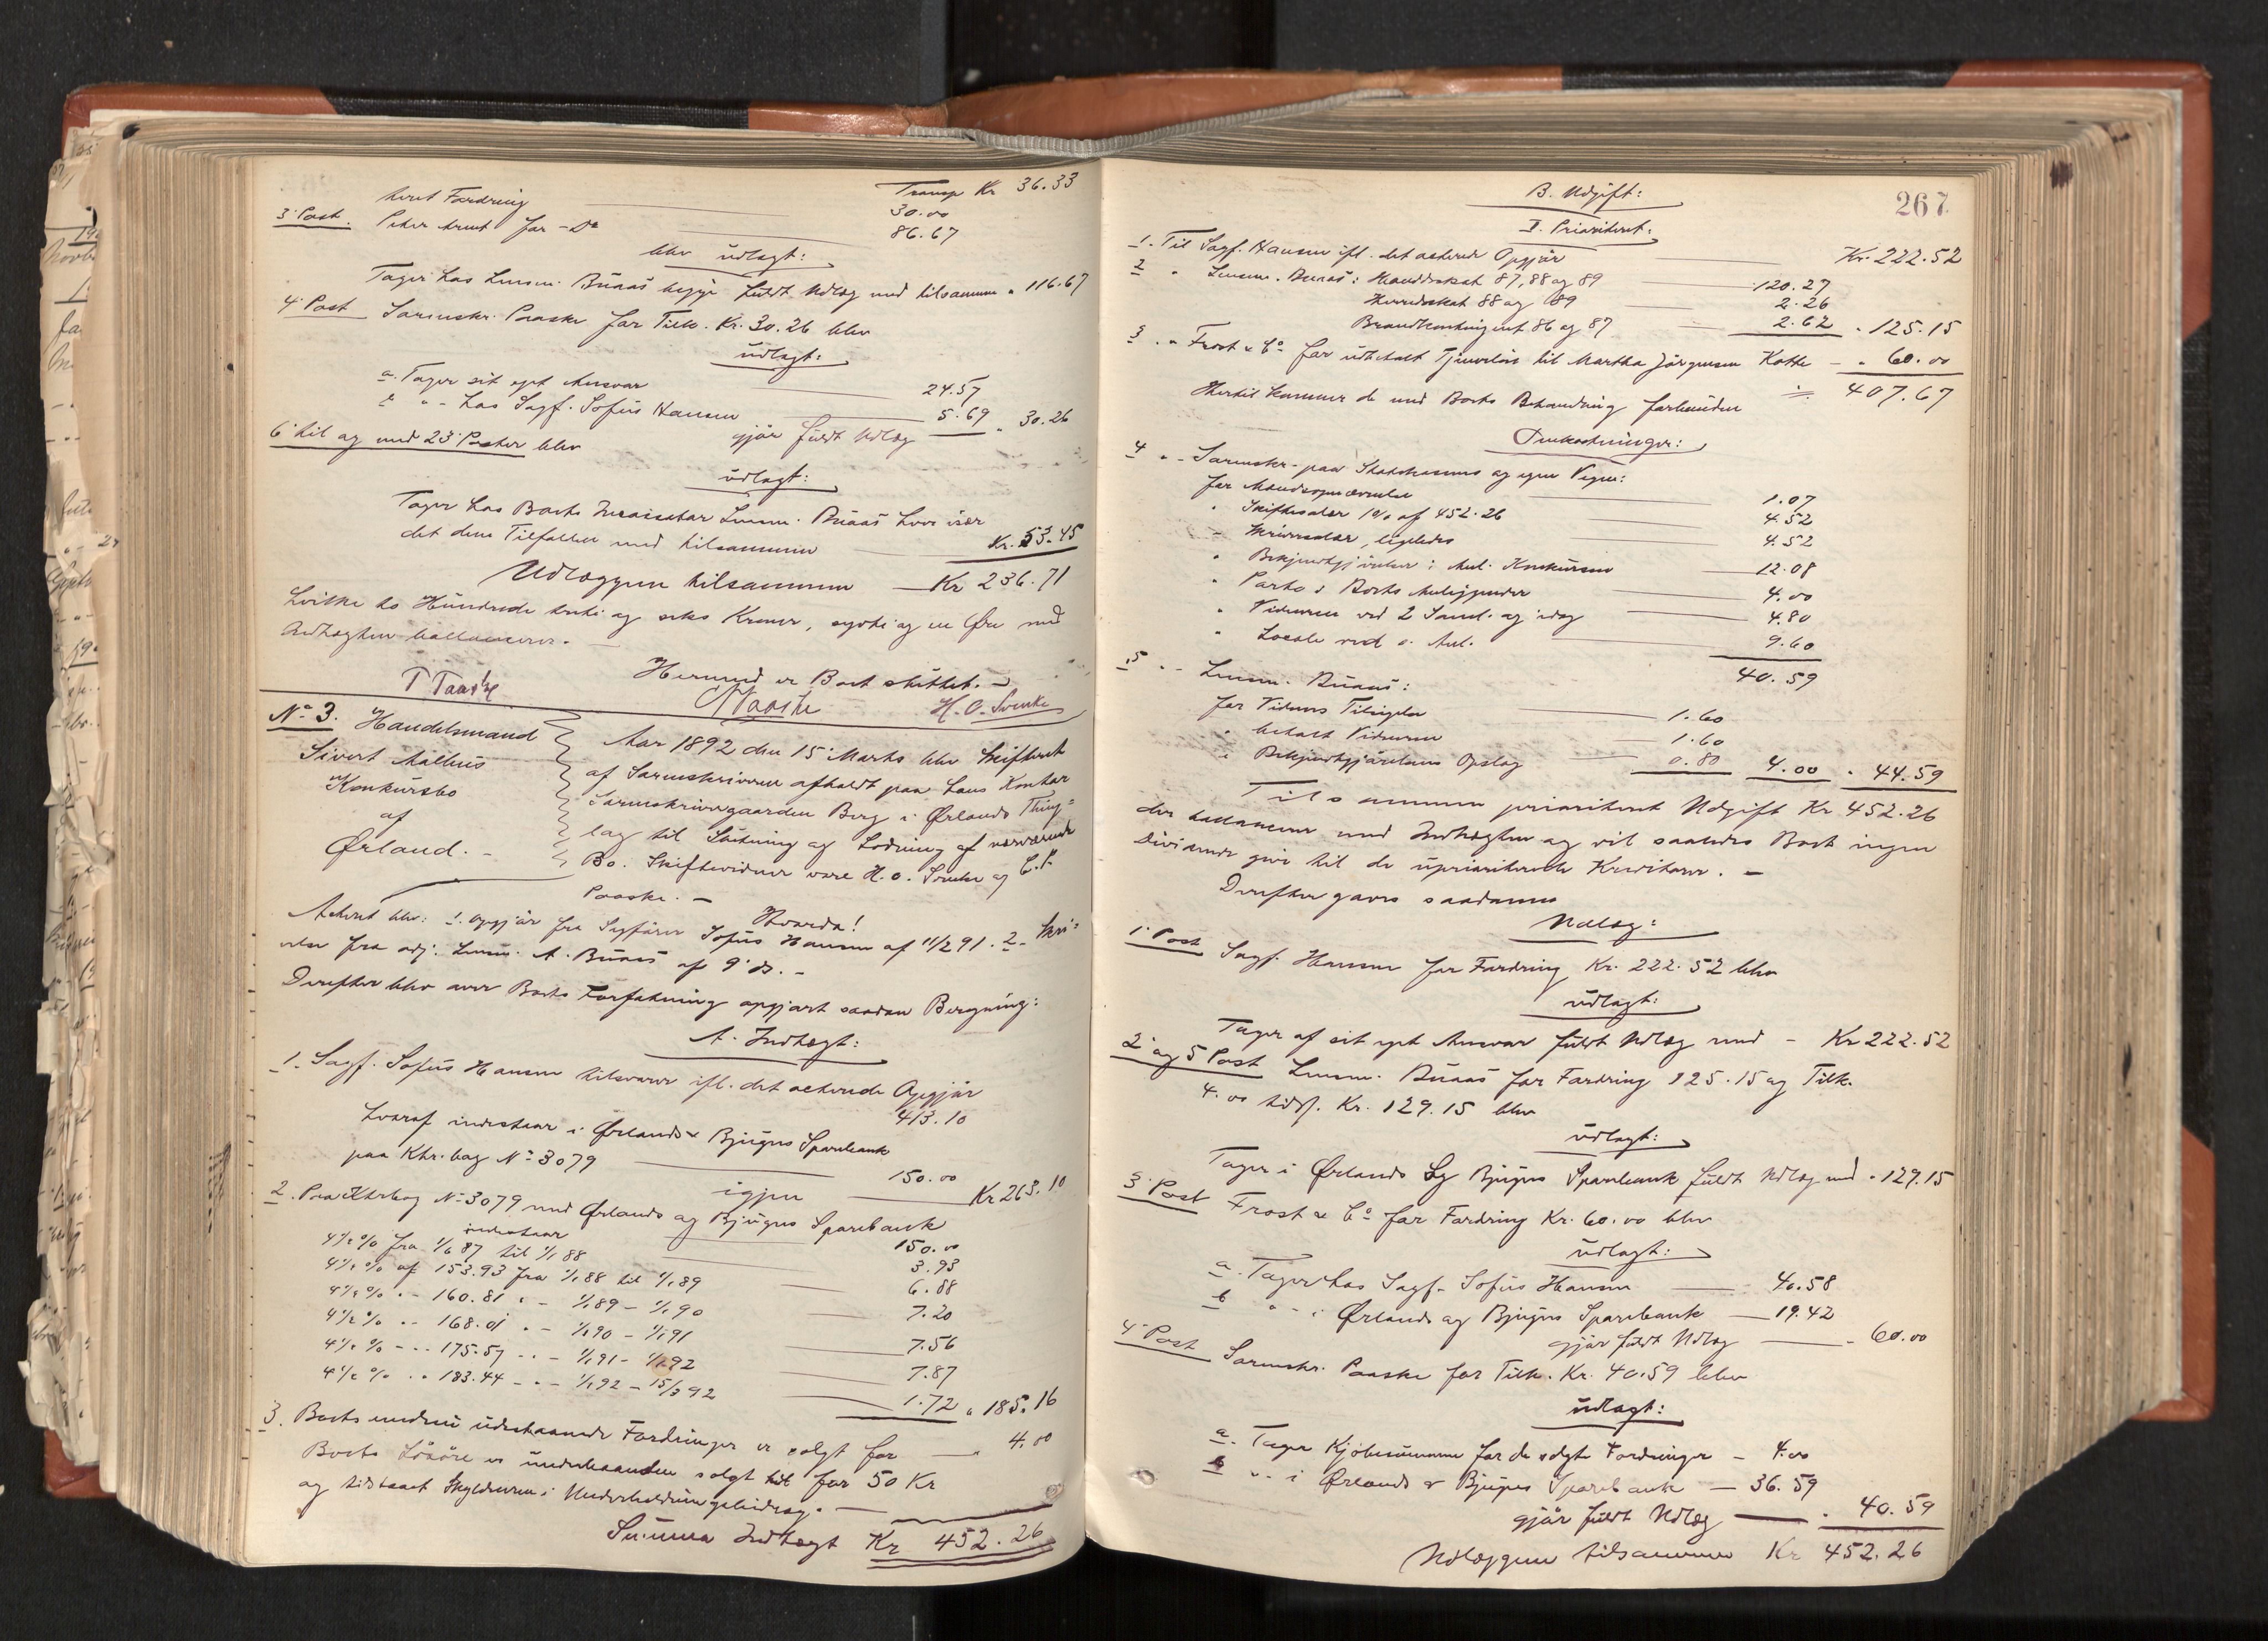 Transp Kr 36.33
Arnt Fordring 30.00
3' Post. Peter Arnt for - Do 86.67
blev udlagt:
Tager hos Lensm. Buaas begge fuldt Udlæg med tilsammen " 116.67
4' Post Sorenskr. Paaske for Tilk. Kr. 30.26 blev
udlagt:
a. Tager sit eget Ansvar 24.57
b " - hos Sagf. Sofus Hansen 5.69
gjør fuldt Udlæg " 30.26
6' til og med 23' Poster blev
udlagt:
Tager hos Boets Incassator Lensm. Buaas hver især
det dem Tilfaldne med tilsammen Kr. 53.45
Udlæggene tilsammen Kr 236.71
hvilke to Hundrede treti og seks Kroner, sytti og en Øre med
Indtægten ballancerer. -
Hermed er Boet sluttet. -
P Paaske Paaske H. O. Svenke
No 3. Handelsmand
Sivert Møllus
Konkursbo
af
Ørland. -
Aar 1892 den 15' Marts blev Skifteret
af Sorenskriveren afholdt paa hans Kontor
Sorenskrivergaarden Berg i Ørlands Thing=
lag til Slutning og Lodning af nærværende
Bo. Skiftevidner vare H. O. Svenke og C. P.
Paaske. -
Hvorda!
Acteret blev: 1. Opgjør fra Sagfører Sofus Hansen af 11/2 91. 2 - Skri=
velse fra adj. Lensm. A. Buaas af 9' ds. -
Derefter blev over Boets Forfatning opgjort saadan Beregning:
A. Indtægt:
1. Sagf. Sofus Hansen tilsvarer ifl. det acterede Opgjør
413.10
hvoraf indestaar i Ørlands & Bjugns Sparebank
paa Ktr. bog No 3079 150.00
igjen Kr 263.10
2. Paa Ktrbog No 3079 med Ørlands og Bjugns Sparebank
indestaar 150.00
4 1/2 % fra 1/6 87 til 1/1 88 3.93
4 1/2 % af 153.93 fra 1/1 88 til 1/1 89 6.88
4 1/2 % " - 160.81 " - 1/1 89 - 1/1 90 7.20
4 1/2 % " - 168.01 " - 1/1 90 - 1/1 91 7.56
4 1/2 % - " - 175.57 " - 1/1 91 - 1/1 92 7.87
4 1/2 % " " 183.44 - " - 1/1 92 - 15/3 92 1.72 " 185.16
3. Boets endnu udestaaende Fordringer er solgt for " 4.00
Boets Løsøre er underhaanden solgt for 50 Kr
og tilstaaet Skyldneren i Underholdningsbidrag. -
Summa Indtægt Kr 452.26
267
B. Udgift:
I. Prioriteret:
1. Til Sagf. Hansen ifl. det acterede Opgjør Kr. 222.52
2 " Lensm. Buaas: Mandtalskat 87, 88 og 89 120.27
Herredsskat 88 og 89 2.26
Brandkontingent 86 og 87 2.62 " 125.15
3 " " Frost & Co for udbetalt Tjenerløn til Martha Jørgensen Kotte " 60.00
407.67
Hertil kommer de med Boets Behandling forbundne
Omkostninger:
4 " - Sorenskr. paa Statskassens og egne Vegne:
for 1.07
" Skiftesalær 1 % af 452.26 4.52
" Skriversalær, ligeledes 4.52
" Bekjendtgjørelser i Anl. Konkursen 12.08
" Porto i Boets Anliggender 4.00
" Vidnerne ved 2 Saml. og idag 4.80
" Locale ved s. Anl. 9.60
40.59
5 " - Lensm. Buaas:
for Vidners Tilsigelse 1.60
" betalt Vidnerne 1.60
" Bekjendtgjørelsens Opslag 0.80 4.00 " 44.59
Tilsammen prioriteret Udgift Kr 452.26
der ballancerer med Indtægten og vil saaledes Boet ingen
Dividende give til de uprioriterede Kreditorer. -
Derefter gaves saadanne
Udlæg:
1' Post Sagf. Hansen for Fordring Kr. 222.52 blev
udlagt:
Tager af sit eget Ansvar fuldt Udlæg med - Kr 222.52
2' og 5 Post Lensm. Buaas for Fordring 125.15 og Tilk.
4.00 tils. Kr. 129.15 blev
udlagt:
Tager i Ørlands og Bjugns Sparebank fuldt Udlæg med " 129.15
3' Post Frost & Co for Fordring Kr. 60.00 blev
udlagt:
a. Tager hos Sagf. Sofus Hansen 40.58
b " - i Ørlands og Bjugns Sparebank 19.42
gjør fuldt Udlæg " 60.00
4' Post Sorenskr. Paaske for Tilk. Kr. 40.59 blev
udlagt:
a. Tager Kjøbesummen for de solgte Fordringer - 4.00
b " - i Ørlands & Bjugns Sparebank 36.59
gjør fuldt Udlæg " 40.59
Udlæggene tilsammen Kr 452.26